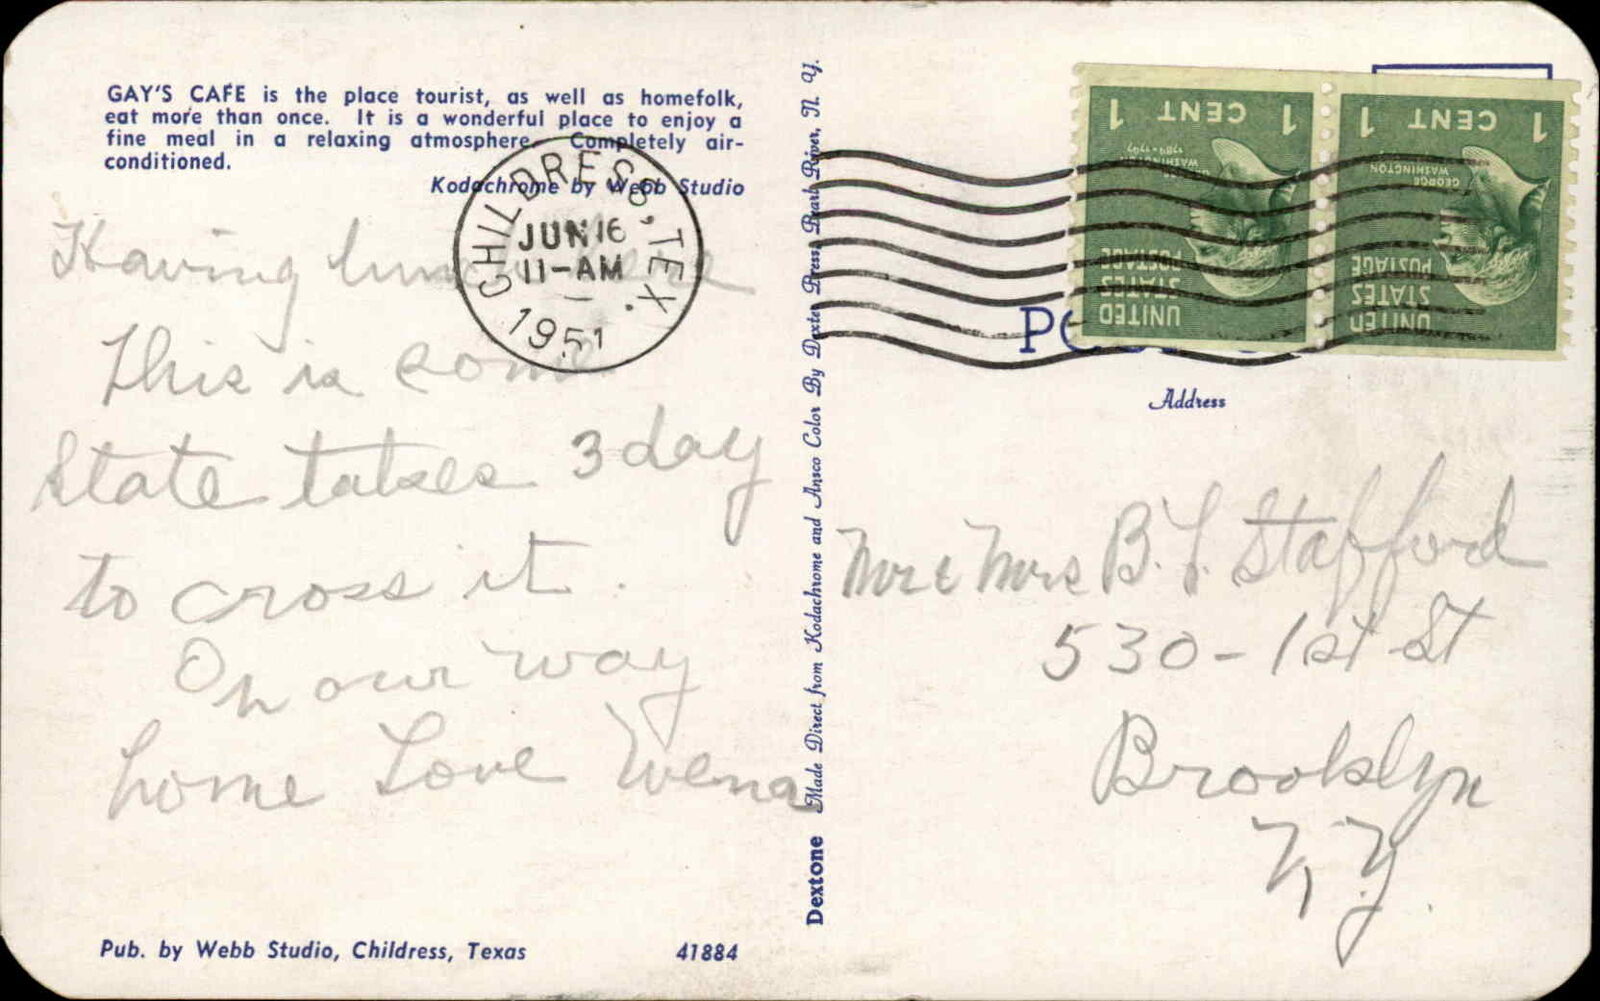 GAY'S CAFE is the place tourist, as well as homefolk,
eat more than once. It is a wonderful place to enjoy a
fine meal in a relaxing atmosphere. Completely air-
conditioned.
Kodachrome by Webb Studio
CHILDRESS, TEX.
JUN 16
11-AM
1951
Having lunch here
This is some
State takes 3 day
to cross it.
On our way
home Love Wena
Pub. by Webb Studio, Childress, Texas
41884
Dextone Made Direct from Kodachrome and Ansco Color By Dexter Press, Pearl River, N. Y.
1 CENT 1
GEORGE WASHINGTON
1789-1797
UNITED
STATES
POSTAGE
1 CENT 1
GEORGE WASHINGTON
UNITED
STATES
POSTAGE
Address
Mr & Mrs B. F. Stafford
530-1st St
Brooklyn
N.Y.